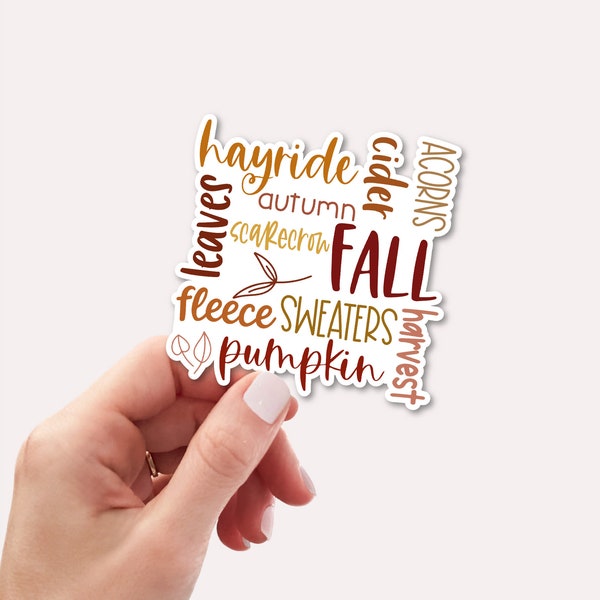 hayride
cider
ACORNS
leaves
autumn
scarecrow
FALL
fleece
SWEATERS
harvest
pumpkin